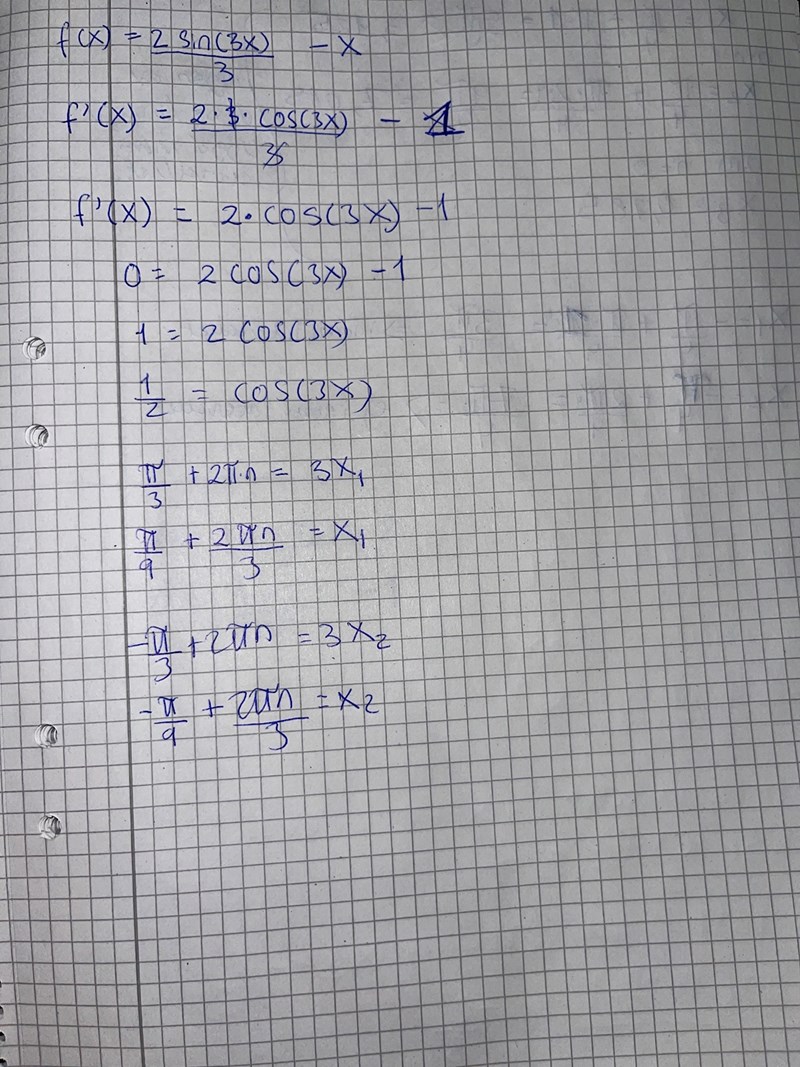 f(x) = 2 sin(3x)/3 - x
f'(x) = 2·3·cos(3x)/3 - 1
f'(x) = 2·cos(3x) - 1
0 = 2 cos(3x) - 1
1 = 2 cos(3x)
1/2 = cos(3x)
π/3 + 2π·n = 3x₁
π/9 + 2πn/3 = x₁
-π/3 + 2πn = 3x₂
-π/9 + 2πn/3 = x₂